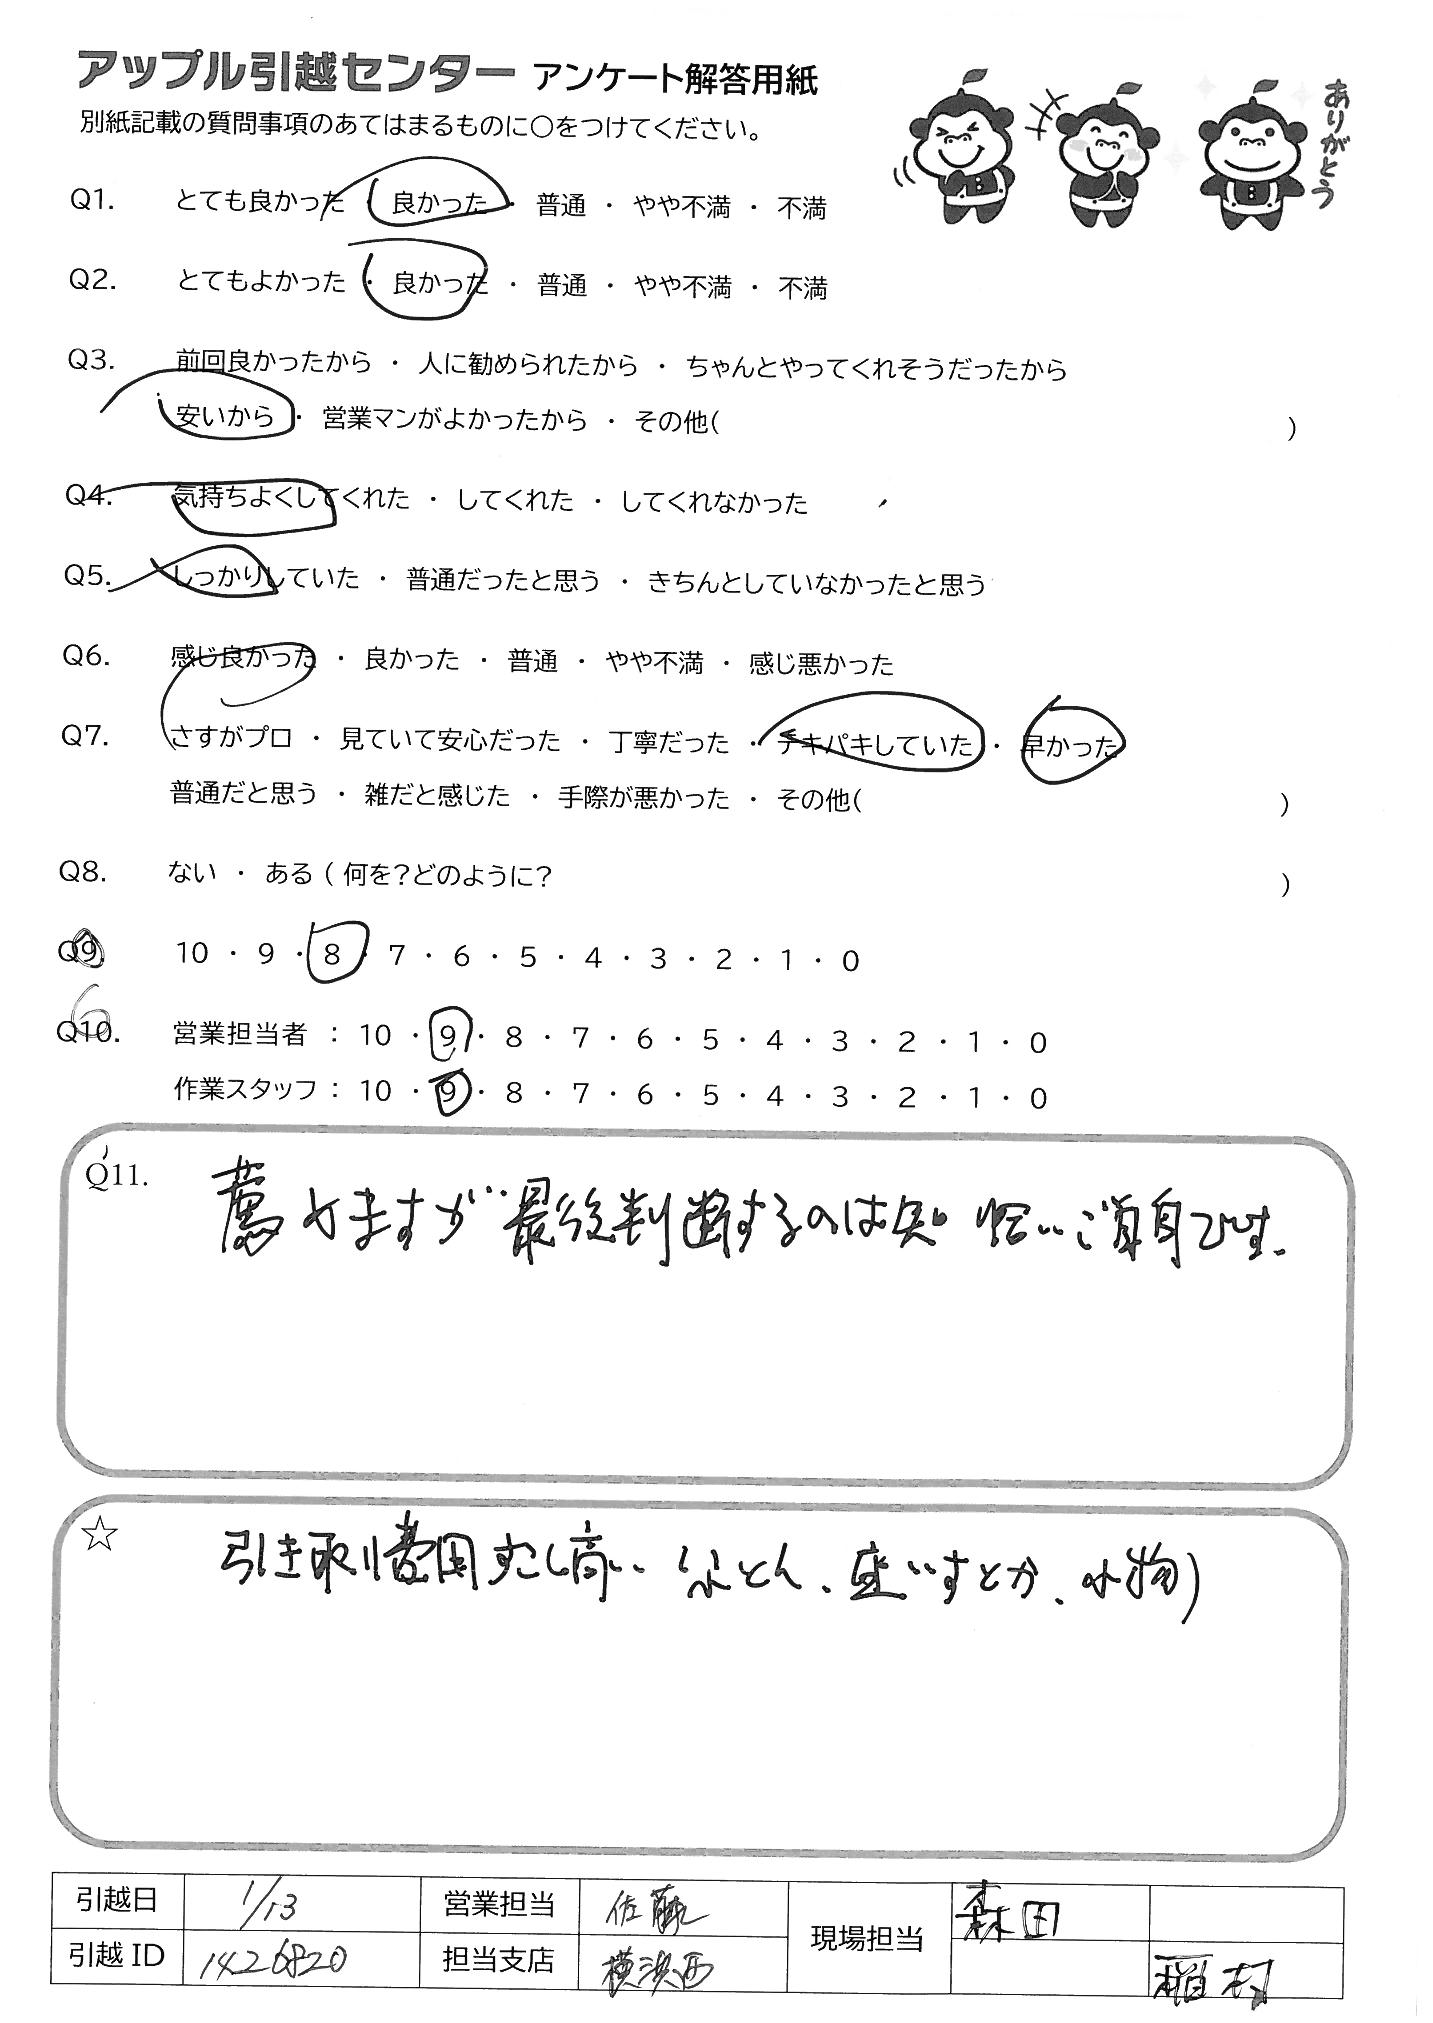 アップル引越センター アンケート解答用紙
ありがとう
別紙記載の質問事項のあてはまるものに○をつけてください。
Q1. とても良かった ・ 良かった ・ 普通 ・ やや不満 ・ 不満
Q2. とてもよかった ・ 良かった ・ 普通 ・ やや不満 ・ 不満
Q3. 前回良かったから ・ 人に勧められたから ・ ちゃんとやってくれそうだったから
安いから ・ 営業マンがよかったから ・ その他( )
Q4. 気持ちよくしてくれた ・ してくれた ・ してくれなかった
Q5. しっかりしていた ・ 普通だったと思う ・ きちんとしていなかったと思う
Q6. 感じ良かった ・ 良かった ・ 普通 ・ やや不満 ・ 感じ悪かった
Q7. さすがプロ ・ 見ていて安心だった ・ 丁寧だった ・ テキパキしていた ・ 早かった
普通だと思う ・ 雑だと感じた ・ 手際が悪かった ・ その他( )
Q8. ない ・ ある ( 何を?どのように? )
Q9 10 ・ 9 ・ 8 ・ 7 ・ 6 ・ 5 ・ 4 ・ 3 ・ 2 ・ 1 ・ 0
6
Q10. 営業担当者 : 10 ・ 9 ・ 8 ・ 7 ・ 6 ・ 5 ・ 4 ・ 3 ・ 2 ・ 1 ・ 0
作業スタッフ : 10 ・ 9 ・ 8 ・ 7 ・ 6 ・ 5 ・ 4 ・ 3 ・ 2 ・ 1 ・ 0
Q11. 薦めますが最後判断するのは知り合いご自身です。
☆ 引き取り費用すこし高い (ふとん、座いすとか、小物)
引越日 1/13 営業担当 佐藤 現場担当 森田
引越ID 1426820 担当支店 横浜西 稲村